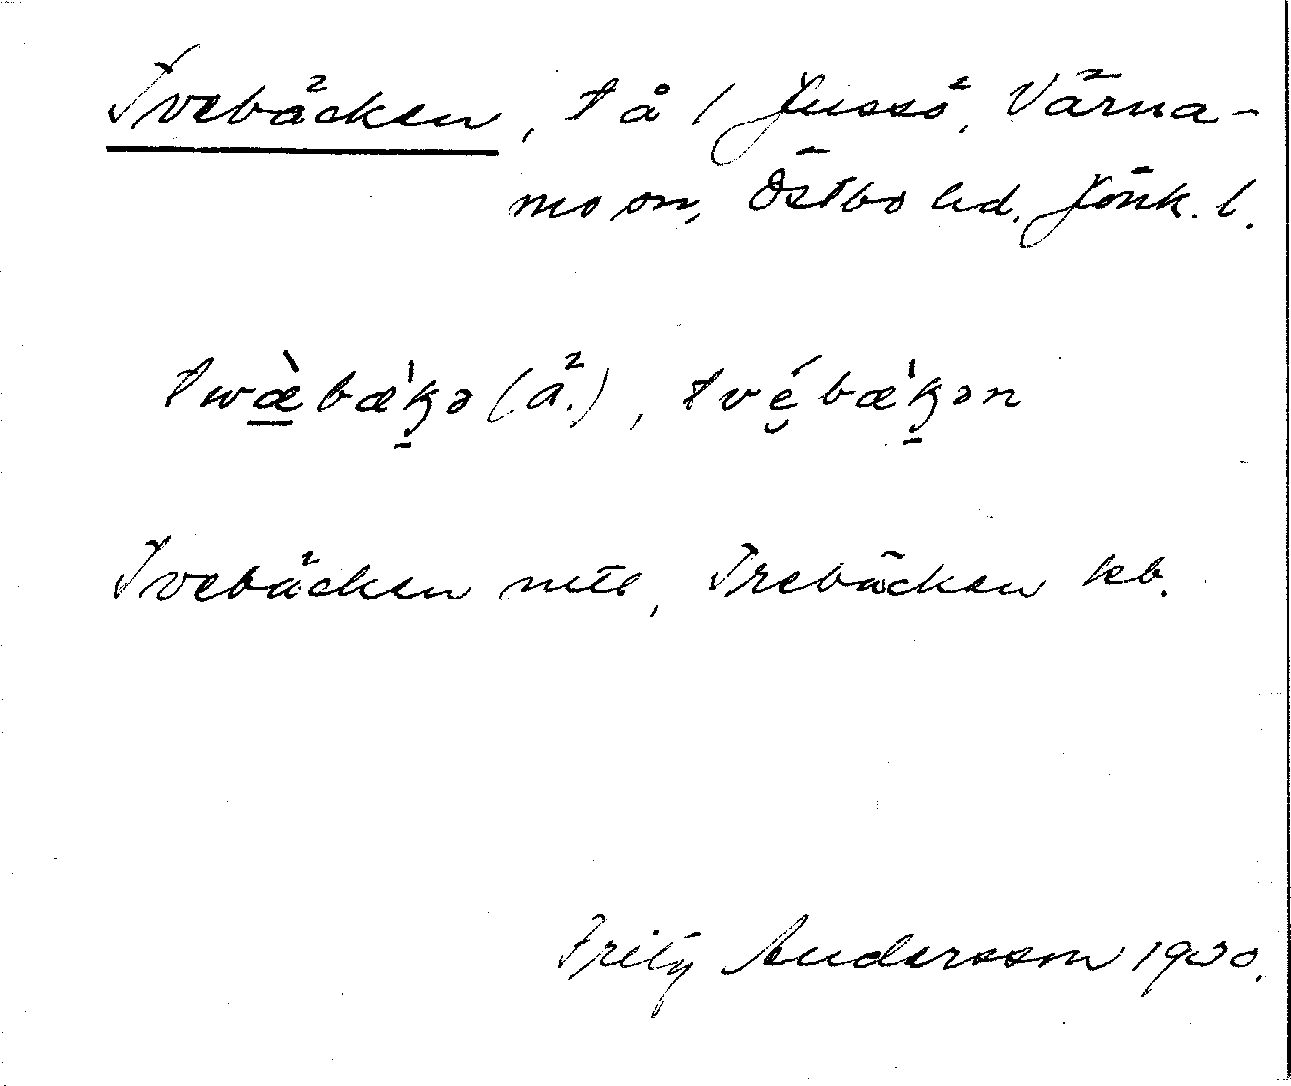 Tvebäcken, t å / Jussö, Värna-
mo sn, Östbo hd. Jönk. l.
twæ̀bæ'kə (ä.), tvébæ'kən
Tvebäcken mtb, Trebäcken kb.
Fritz Andersson 1930.